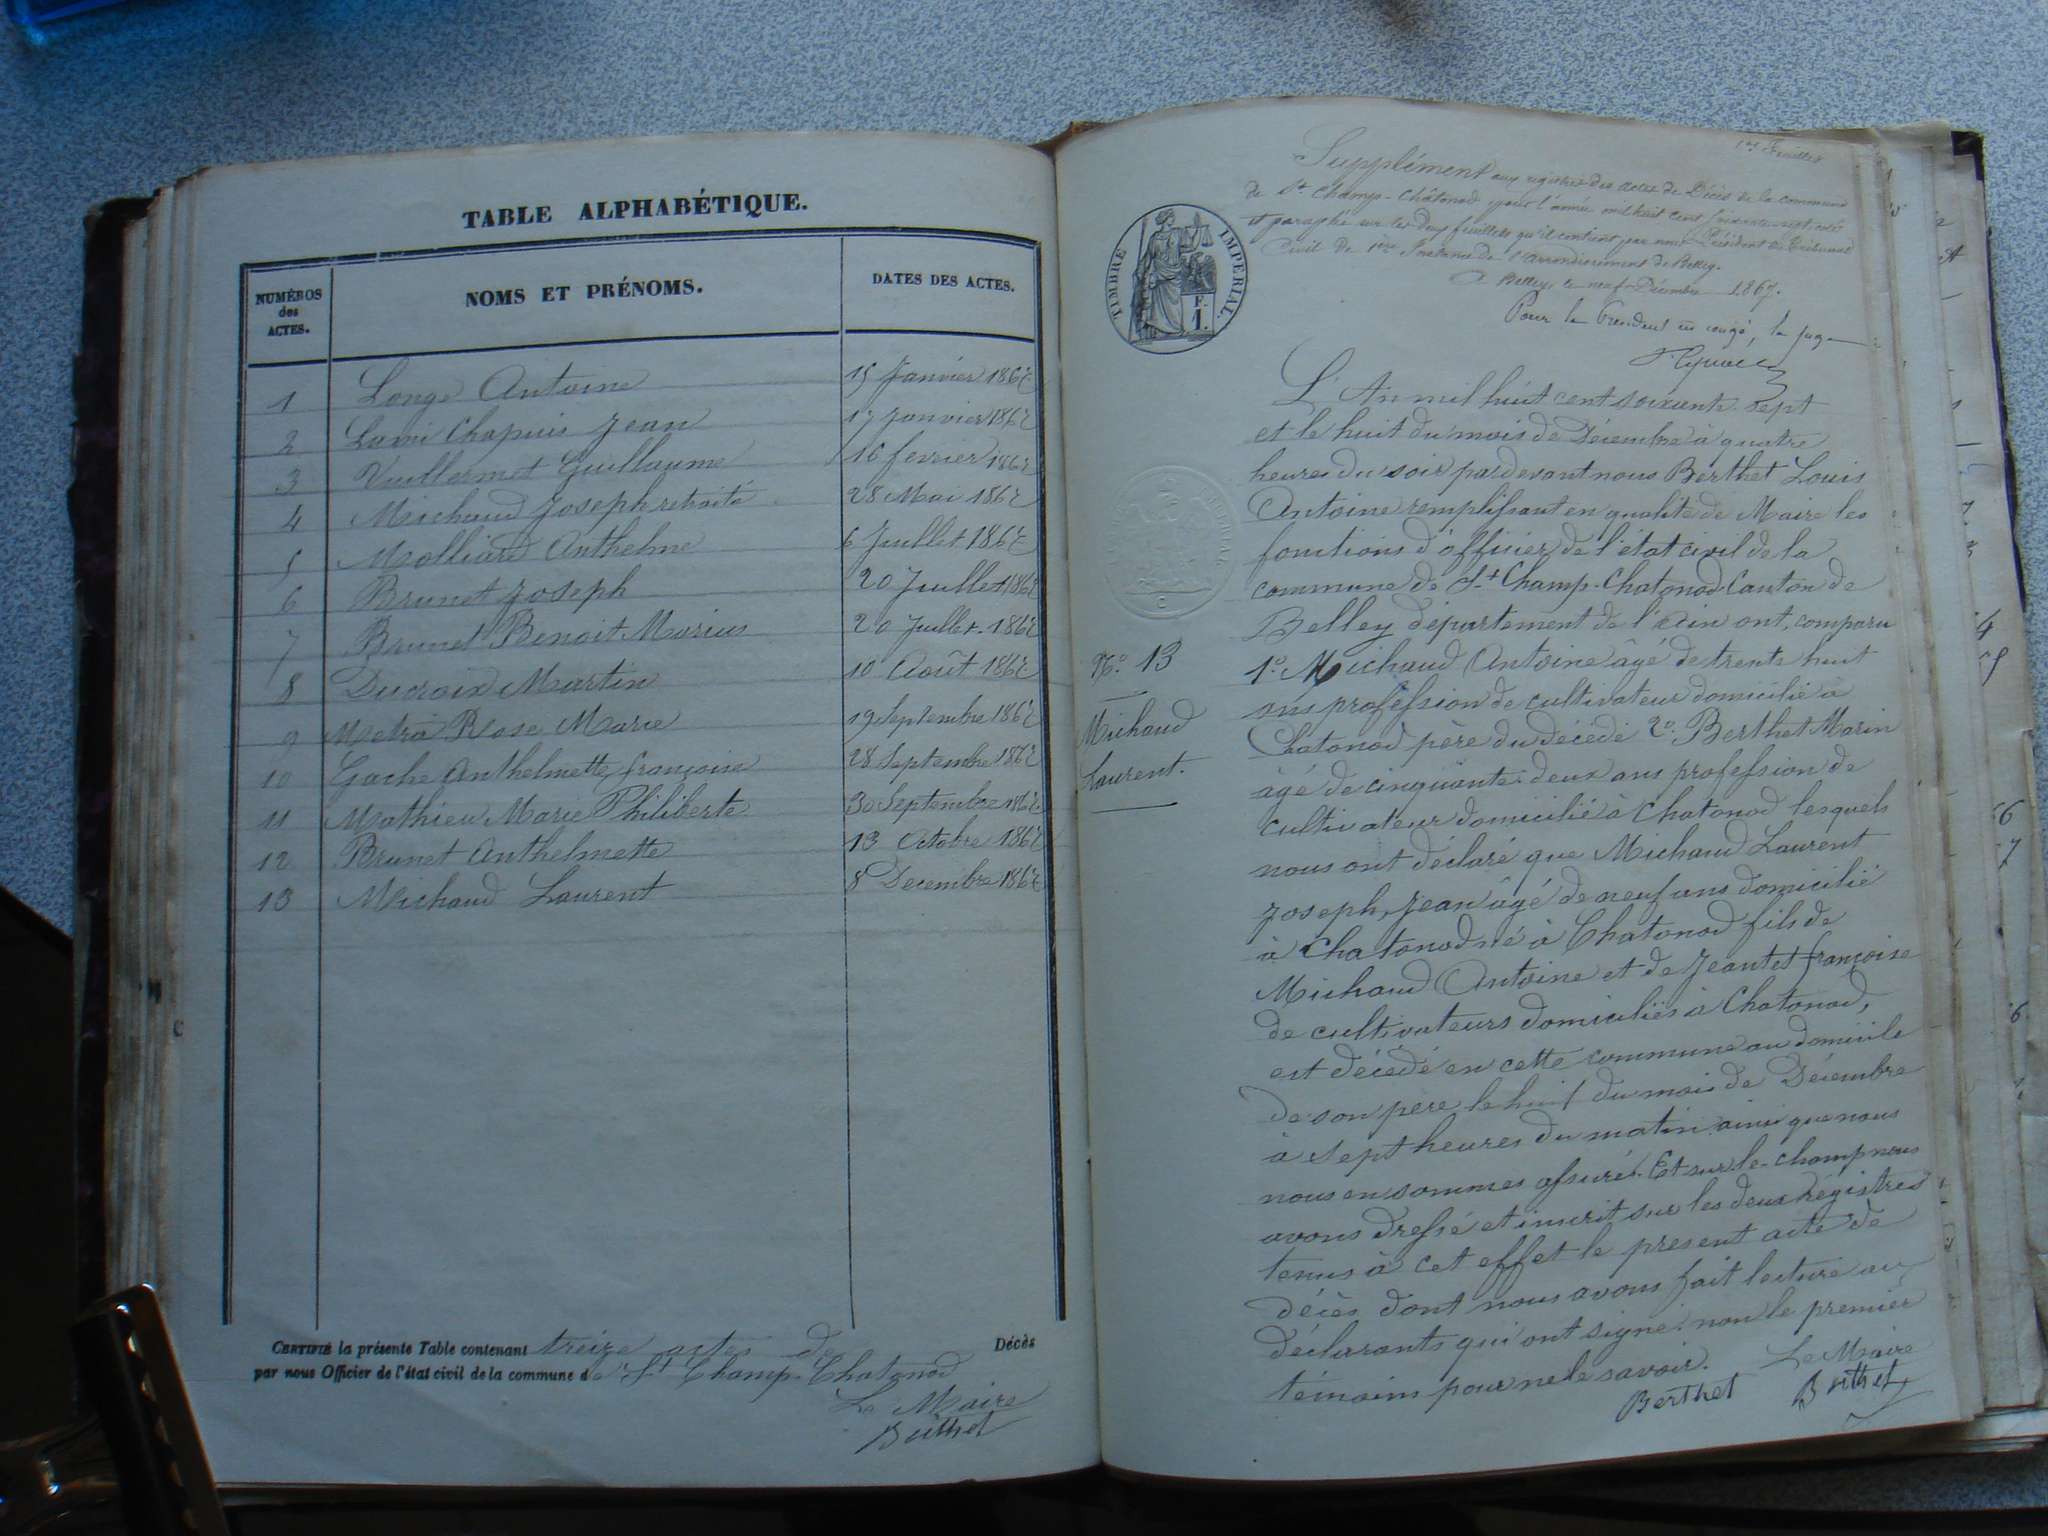 TABLE ALPHABÉTIQUE.
NUMÉROS des ACTES.
NOMS ET PRÉNOMS.
DATES DES ACTES.
1 Longe Antoine 15 Janvier 1867
2 Lami Chapuis Jean 17 Janvier 1867
3 Vuillermet Guillaume 16 fevrier 1867
4 Michaud Joseph retraité 28 Mai 1867
5 Molliard Anthelme 6 Juillet 1867
6 Brunet Joseph 20 Juillet 1867
7 Brunet Benoit Marius 20 Juillet 1867
8 Ducroix Martin 10 Août 1867
9 Metra Rose Marie 19 Septembre 1867
10 Gache Anthelmette françoise 28 Septembre 1867
11 Mathieu Marie Philiberte 30 Septembre 1867
12 Brunet Anthelmette 13 Octobre 1867
13 Michaud Laurent 8 Decembre 1867
CERTIFIÉ la présente Table contenant treize actes de Décès
par nous Officier de l'état civil de la commune de St Champ-Chatonod
Le Maire
Berthet
1er Feuillet
Supplément aux registres des actes de Décès de la commune
de St Champ-Châtonod pour l'année mil huit cent soixante-sept, coté
et paraphé sur les deux feuillets qu'il contient par nous Président du Tribunal
Civil de 1ère Instance de l'arrondissement de Belley.
A Belley, le neuf Décembre 1867.
Pour le Président en congé, le juge
TIMBRE IMPERIAL.
F.
1.
L'An mil huit cent soixante sept
et le huit du mois de Décembre à quatre
heures du soir par devant nous Berthet Louis
Antoine remplissant en qualité de Maire les
fonctions d'officier de l'état civil de la
commune de St Champ-Chatonod Canton de
Belley département de l'Ain ont, comparu
No. 13
Michaud
Laurent.
1o. Michaud Antoine âgé de trente huit
ans profession de cultivateur domicilié à
Chatonod père du décédé 2o. Berthet Marin
âgé de cinquante-deux ans profession de
cultivateur domicilié à Chatonod lesquels
nous ont déclaré que Michaud Laurent
Joseph, Jean âgé de neuf ans domicilié
à Chatonod né à Chatonod fils de
Michaud Antoine et de Jeantet françoise
de cultivateurs domiciliés à Chatonod,
est décédé en cette commune au domicile
de son père le huit du mois de Décembre
à sept heures du matin ainsi que nous
nous en sommes assuré. Et sur-le-champ nous
avons dressé et inscrit sur les deux régistres
tenus à cet effet le présent acte de
décès dont nous avons fait lecture aux
déclarants qui ont signé; non le premier
témoins pour ne le savoir.
Le Maire
Berthet Berthet